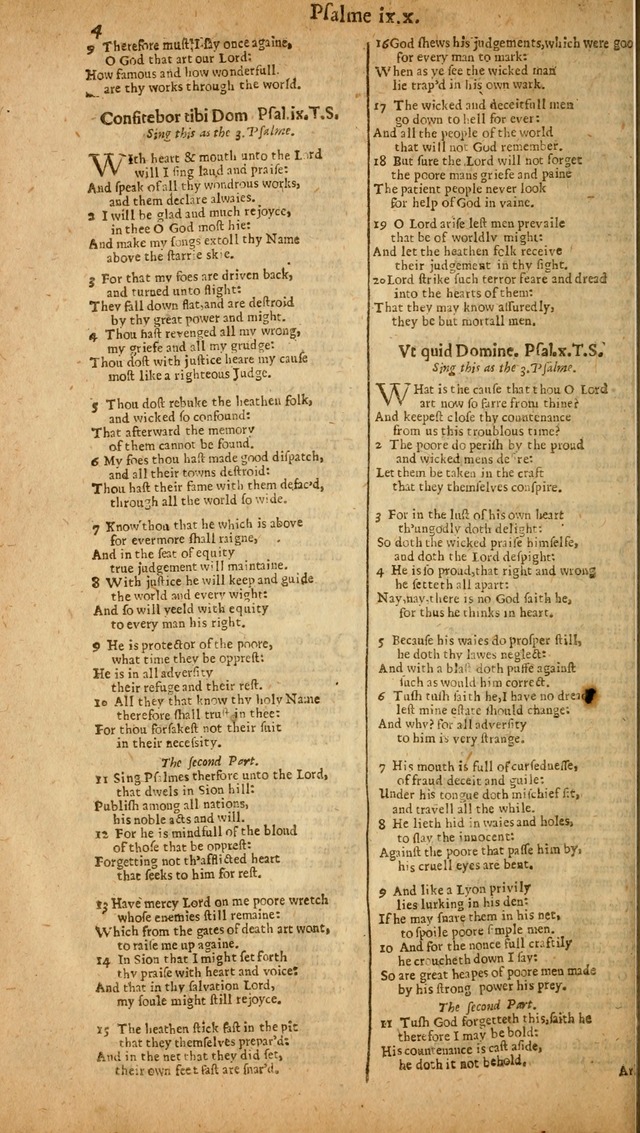 Psalme ix.x.
4
9 Therefore must I say once againe,
O God that art our Lord:
How famous and how wonderfull
are thy works through the world.
Confitebor tibi Dom Psal.ix.T.S.
Sing this as the 3. Psalme.
With heart & mouth unto the Lord
will I sing laud and praise:
And speak of all thy wondrous works,
and them declare alwaies.
2 I will be glad and much rejoyce,
in thee O God most hie:
And make my songs extoll thy Name
above the starrie skie.
3 For that my foes are driven back,
and turned unto flight:
They fall down flat, and are destroid
by thy great power and might.
4 Thou hast revenged all my wrong,
my griefe and all my grudge:
Thou dost with justice heare my cause
most like a righteous Judge.
5 Thou dost rebuke the heathen folk,
and wicked so confound:
That afterward the memory
of them cannot be found.
6 My foes thou hast made good dispatch,
and all their towns destroid:
Thou hast their fame with them defac'd,
through all the world so wide.
7 Know thou that he which is above
for evermore shall raigne,
And in the seat of equity
true judgement will maintaine.
8 With justice he will keep and guide
the world and every wight:
And so will yeeld with equity
to every man his right.
9 He is protector of the poore,
what time they be opprest:
He is in all adversity
their refuge and their rest.
10 All they that know thy holy Name
therefore shall trust in thee:
For thou forsakest not their suit
in their necessity.
The second Part.
11 Sing Psalmes therfore unto the Lord,
that dwels in Sion hill:
Publish among all nations,
his noble acts and will.
12 For he is mindfull of the bloud
of those that be opprest:
Forgetting not th'afflicted heart
that seeks to him for rest.
13 Have mercy Lord on me poore wretch
whose enemies still remaine:
Which from the gates of death art wont,
to raise me up againe.
14 In Sion that I might set forth
thy praise with heart and voice:
And that in thy salvation Lord,
my soule might still rejoyce.
15 The heathen stick fast in the pit
that they themselves prepar'd:
And in the net that they did set,
their own feet fast are snar'd.
16 God shews his judgements, which were goo
for every man to mark:
When as ye see the wicked man
lie trap'd in his own wark.
17 The wicked and deceitfull men
go down to hell for ever:
And all the people of the world
that will not God remember.
18 But sure the Lord will not forget
the poore mans griefe and paine
The patient people never look
for help of God in vaine.
19 O Lord arise lest men prevaile
that be of worldly might:
And let the heathen folk receive
their judgement in thy sight.
20 Lord strike such terror feare and dread
into the hearts of them:
That they may know assuredly,
they be but mortall men.
Vt quid Domine. Psal.x.T.S.
Sing this as the 3. Psalme.
What is the cause that thou O Lord
art now so farre from thine?
And keepest close thy countenance
from us this troublous time?
2 The poore do perish by the proud
and wicked mens desire:
Let them be taken in the craft
that they themselves conspire.
3 For in the lust of his own heart
th'ungodly doth delight:
So doth the wicked praise himselfe,
and doth the Lord despight:
4 He is so proud, that right and wrong
he setteth all apart:
Nay, nay, there is no God saith he,
for thus he thinks in heart.
5 Because his waies do prosper still,
he doth thy lawes neglect:
And with a blast doth puffe against
such as would him correct.
6 Tush tush saith he, I have no dread
lest mine estate should change:
And why? for all adversity
to him is very strange.
7 His mouth is full of cursednesse,
of fraud deceit and guile:
Under his tongue doth mischief sit,
and travell all the while.
8 He lieth hid in waies and holes,
to slay the innocent:
Against the poore that passe him by,
his cruell eyes are bent.
9 And like a Lyon privily
lies lurking in his den:
If he may snare them in his net,
to spoile poore simple men.
10 And for the nonce full craftily
he croucheth down I say:
So are great heapes of poore men made
by his strong power his prey.
The second Part.
11 Tush God forgetteth this, saith he
therefore I may be bold:
His countenance is cast aside,
he doth it not behold.